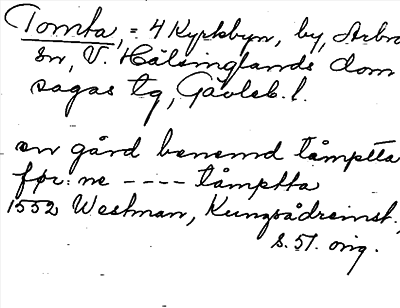 Tomta, = 4 Kyrkbyn, by, Arbrå
sn, V. Hälsinglands dom
sagas tg, Gävleb. l.
en gård benemd tåmptta
før: ne ---- tåmptta
1552 Westman, Kungsådreinst.,
s. 51. orig.